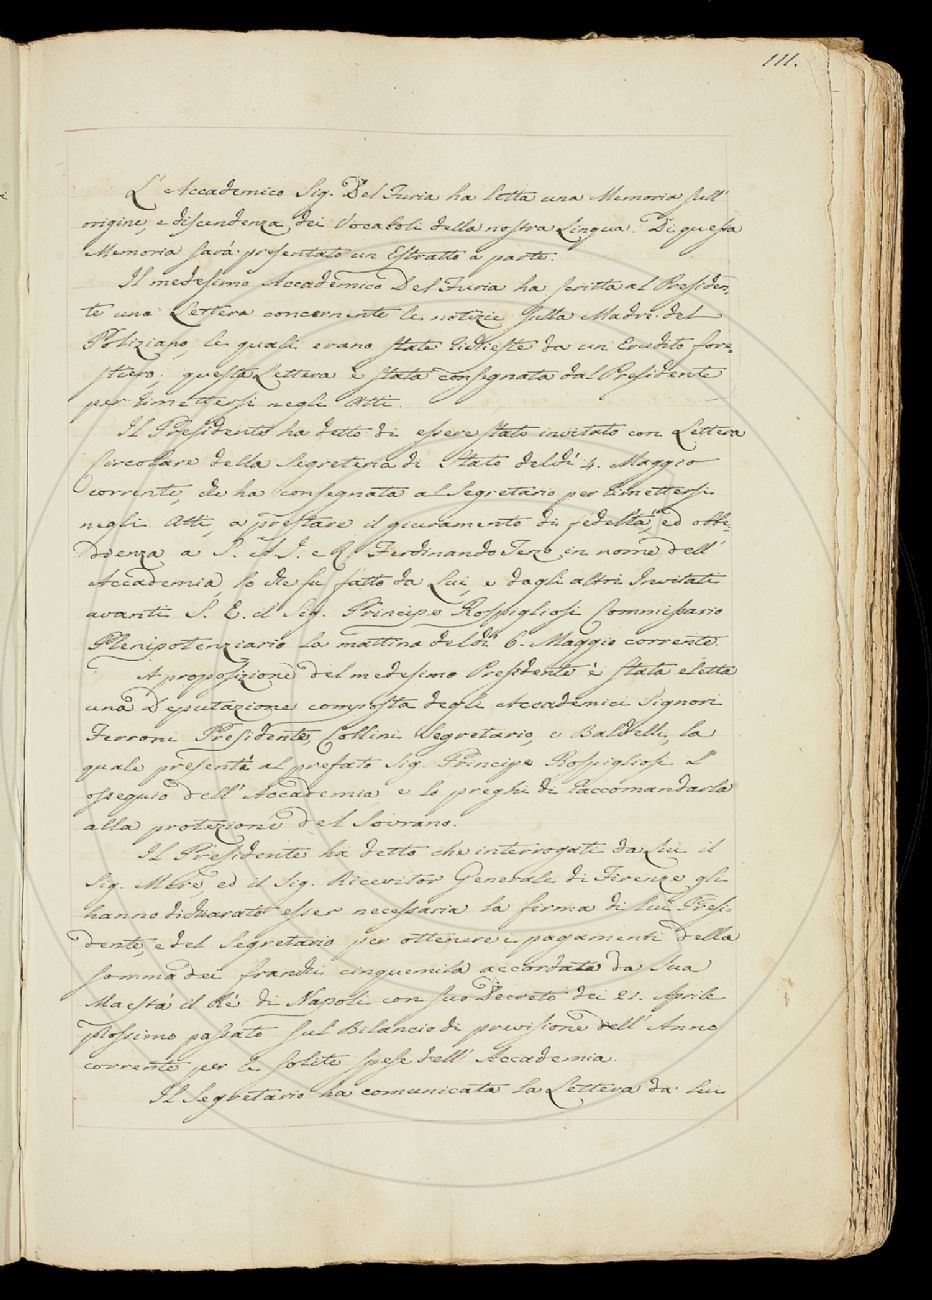 111.
L'Accademico Sig. Del Furia ha letta una Memoria sull'
origine, e discendenza dei Vocaboli della nostra Lingua. Di questa
Memoria sarà presentato un Estratto a parte.
Il medesimo Accademico Del Furia ha scritta al Presiden-
te una Lettera concernente le notizie sulla Madre del
Poliziano, le quali erano state richieste da un Erudito fore-
stiero; questa Lettera è stata consegnata dal Presidente
per rimettersi negli Atti.
Il Presidente ha detto di essere stato invitato con Lettera
Circolare della Segreteria di Stato del dì 4. Maggio
corrente, che ha consegnata al Segretario per rimettersi
negli Atti, a prestare il giuramento di fedeltà, ed obbe-
dienza a S. A. I. e R. Ferdinando Terzo in nome dell'
Accademia, lo che fu fatto da Lui, e dagli altri Invitati
avanti S. E. il Sig. Principe Rospigliosi Commissario
Plenipotenziario la mattina del dì 6. Maggio corrente.
A proposizione del medesimo Presidente è stata eletta
una Deputazione composta degli Accademici Signori
Ferroni Presidente, Collini Segretario, e Baldelli, la
quale presenti al prefato Sig. Principe Rospigliosi l'
ossequio dell'Accademia, e lo preghi di raccomandarla
alla protezione del Sovrano.
Il Presidente ha detto che interrogati da Lui il
Sig. Mere, ed il Sig. Ricevitor Generale di Firenze gli
hanno dichiarato esser necessaria la firma di Lui Presi-
dente, e del Segretario per ottenere i pagamenti della
somma dei franchi cinquemila accordata da Sua
Maestà il Rè di Napoli con suo Decreto dei 21. Aprile
prossimo passato sul Bilancio di previsione dell'Anno
corrente per le solite spese dell'Accademia.
Il Segretario ha comunicata la Lettera da lui